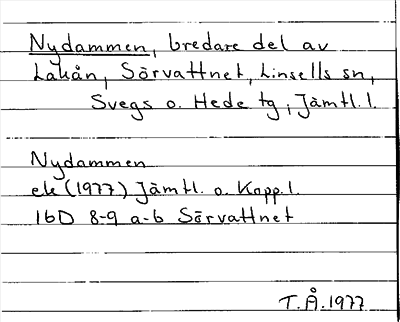 Nydammen, bredare del av
Lakån, Särvattnet, Linsells sn,
Svegs o. Hede tg, Jämtl. l.
Nydammen
ek (1977) Jämtl. o. Kopp. l.
16D 8-9 a-b Särvattnet
T.Å. 1977